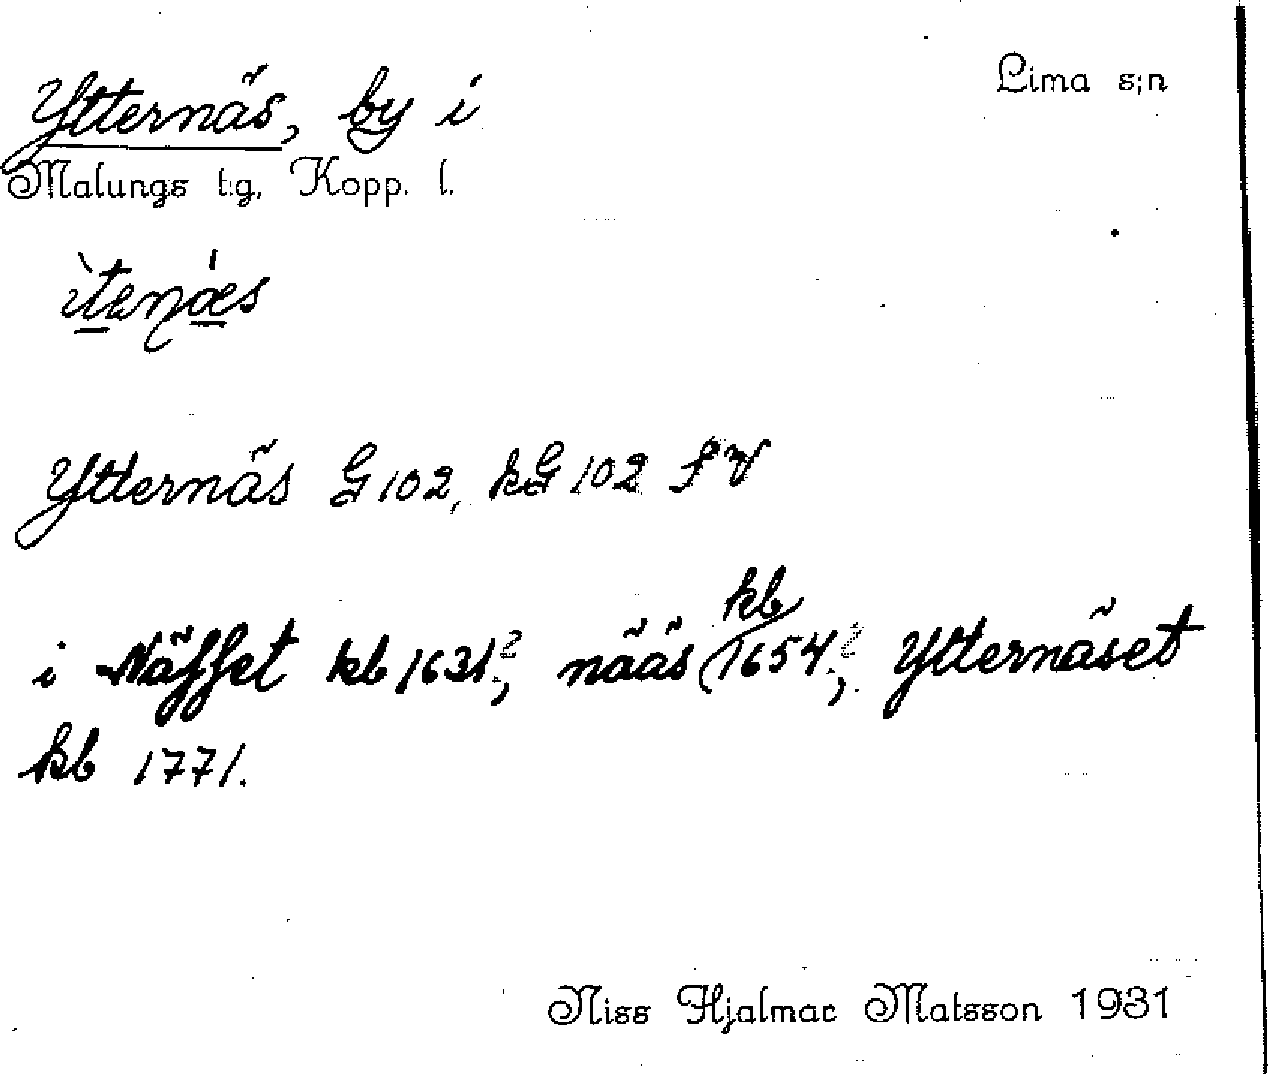 Ytternäs, by i
Lima s:n
Malungs t:g, Kopp. l.
ìtenæ̀s
Ytternäs G 102, kG 102
i Näſſet kb 1631?, nääs (kb 1654?, Ytternäset
kb 1771.
Niss Hjalmar Matsson 1931